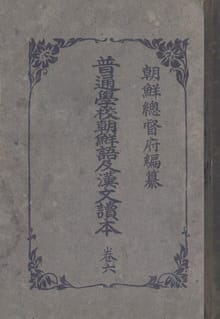 朝鮮總督府編纂
普通學校朝鮮語及漢文讀本 卷六